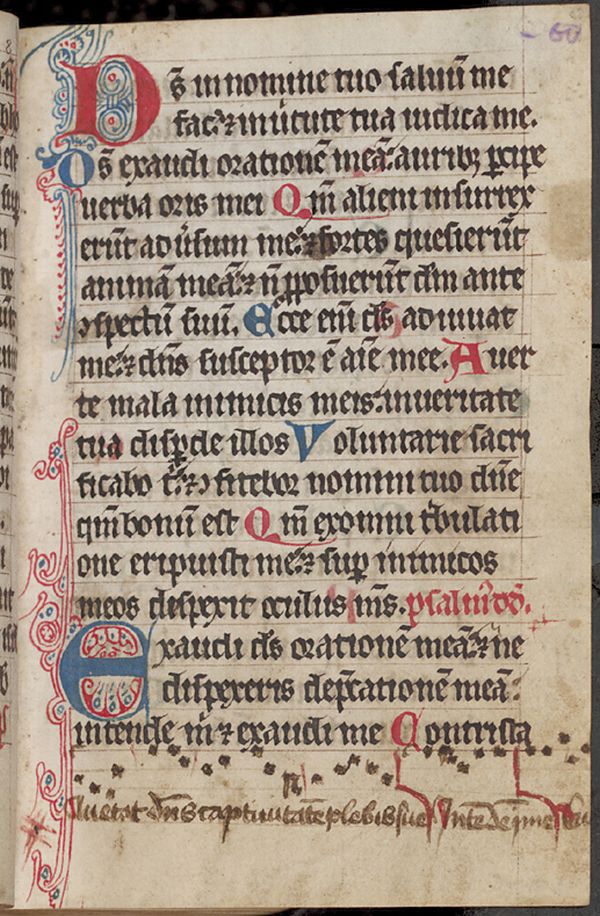 60
Ds in nomine tuo saluū me
fac: ⁊ in ũtute tua iudica me.
Os exaudi orationē meā: auribꝫ ꝑcipe
uerba oris mei Qm̄ alieni insurrex
erūt aduſum me: ⁊ fortes quesierūt
animā meā: ⁊ n̄ ꝓposuerūt dm̄ ante
ↄspectū suū. Ecce eni ds adiuuat
me: ⁊ dn̄s susceptor ē aīe mee. Auer
te mala inimicis meis: in ueritate
tua disꝑde illos Voluntarie sacri
ficabo t: ⁊ ↄfitebor nomini tuo dn̄e
qm̄ bonū est Qm̄ ex omni tbulati
one eripuisti me: ⁊ suꝑ inimicos
meos despexit oculus ms. psalm dd.
Exaudi ds orationē meā: ⁊ ne
despexeris depcationē meā:
intende m ⁊ exaudi me Contrista
Auertet dn̄s captiuitatē plebis sue Intende in me